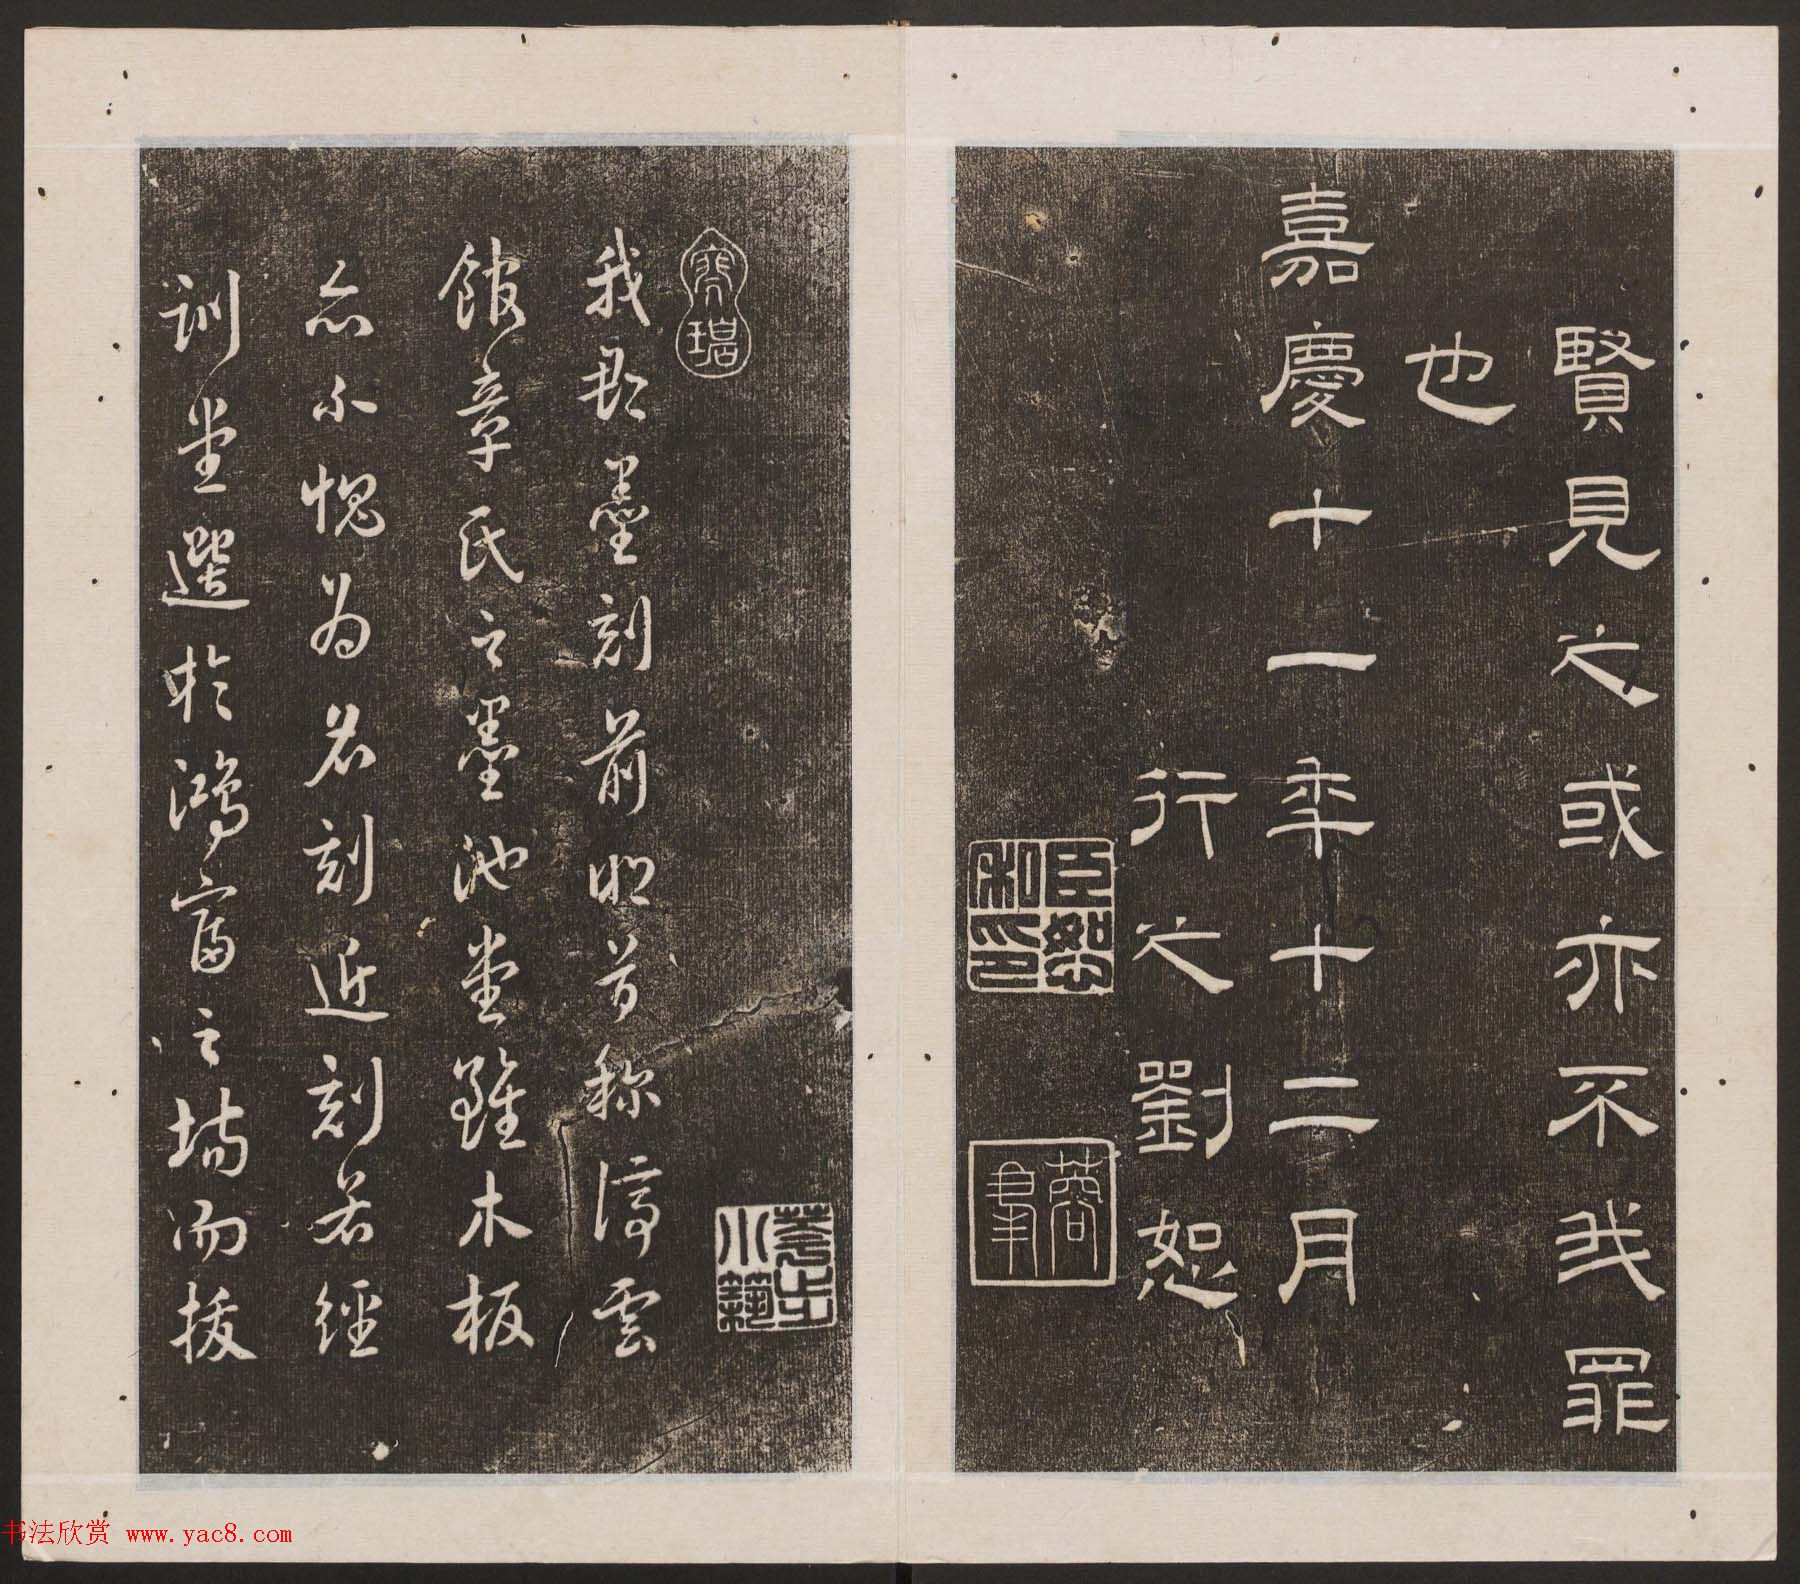 賢見之或亦不我罪
也
嘉慶十一年十二月
行之劉恕
臣恕私印
蓉峯
寒碧
花步小築
我郡墨刻前明首稱停雲
館章氏之墨池堂雖木板
亦不愧為名刻近刻若經
訓堂選於鴻富之場而拔
书法欣赏 www.yac8.com